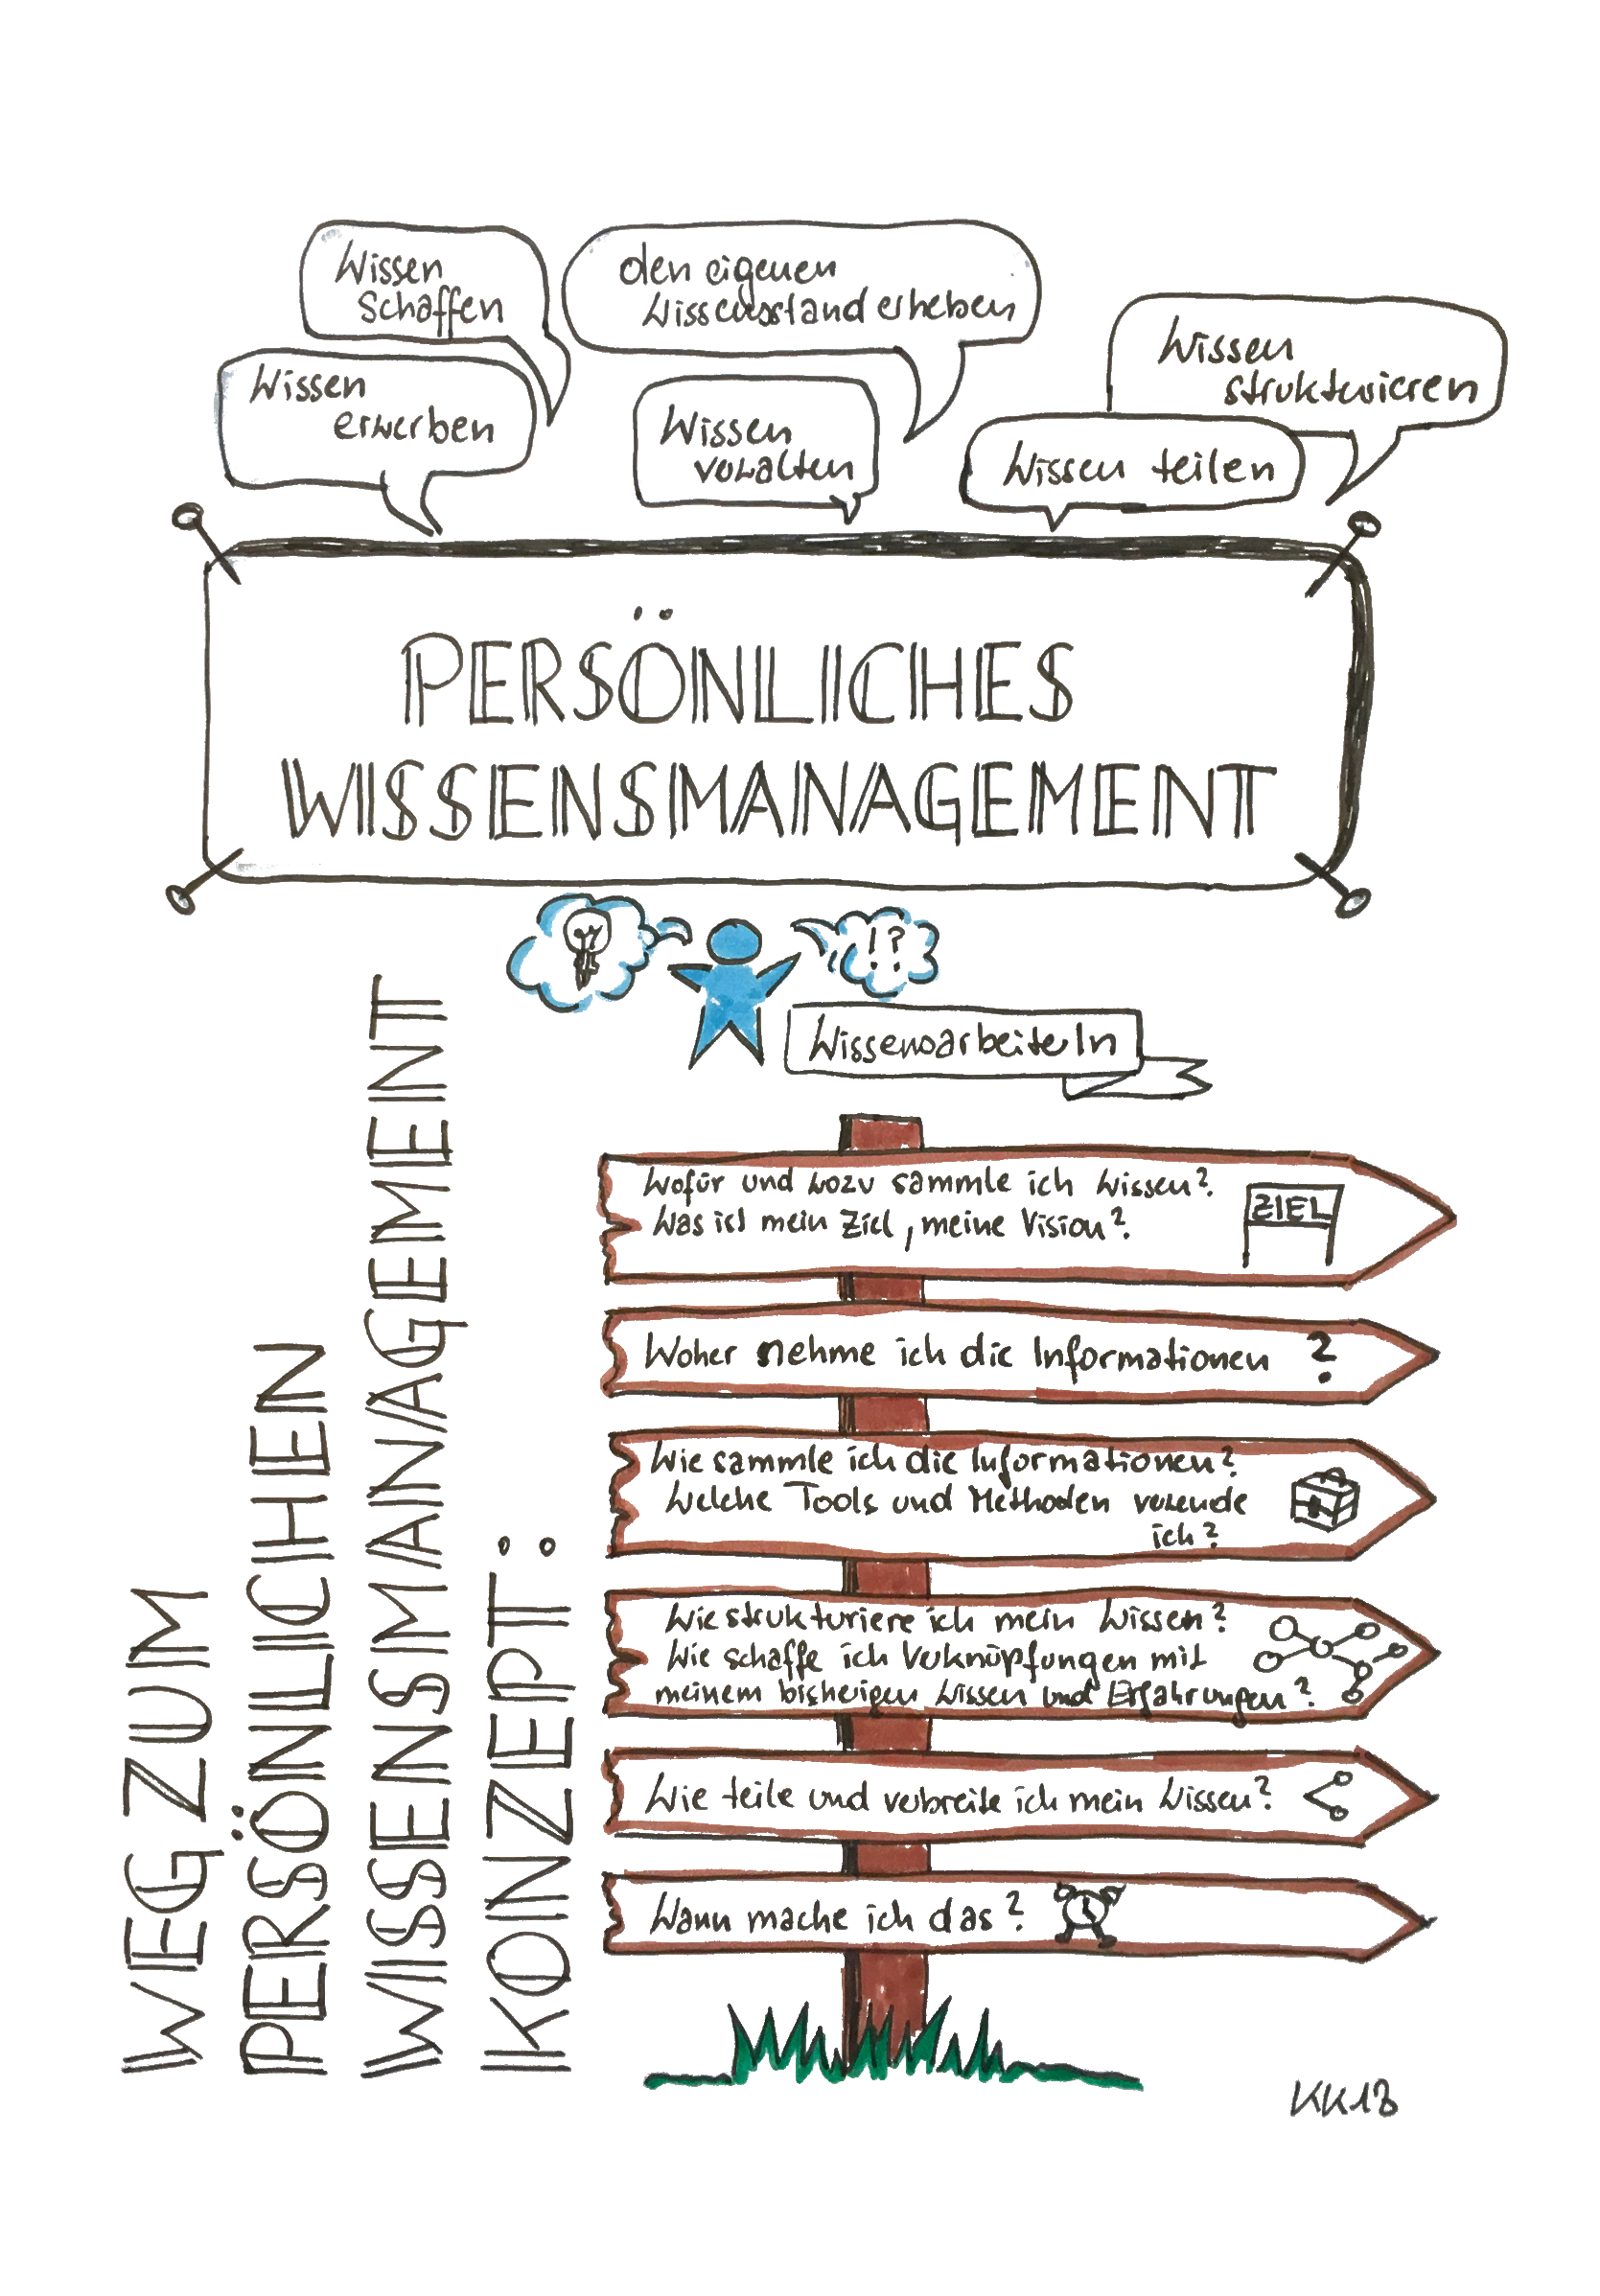 Wissen
schaffen
den eigenen
Wissensstand erheben
Wissen
strukturieren
Wissen
erwerben
Wissen
verwalten
Wissen teilen
PERSÖNLICHES
WISSENSMANAGEMENT
!?
WissensarbeiterIn
WEG ZUM
PERSÖNLICHEN
WISSENSMANAGEMENT
KONZEPT:
Wofür und wozu sammle ich Wissen?
Was ist mein Ziel, meine Vision?
ZIEL
Woher nehme ich die Informationen ?
Wie sammle ich die Informationen?
Welche Tools und Methoden verwende
ich?
Wie strukturiere ich mein Wissen?
Wie schaffe ich Verknüpfungen mit
meinem bisherigen Wissen und Erfahrungen?
Wie teile und verbreite ich mein Wissen?
Wann mache ich das?
KK18